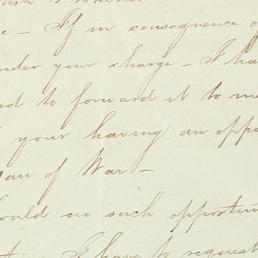 e - If in consequence o
nder your charge - I ha
ed to forward it to me
your having an oppo
eau of War -
ould no such opportun
I have to request